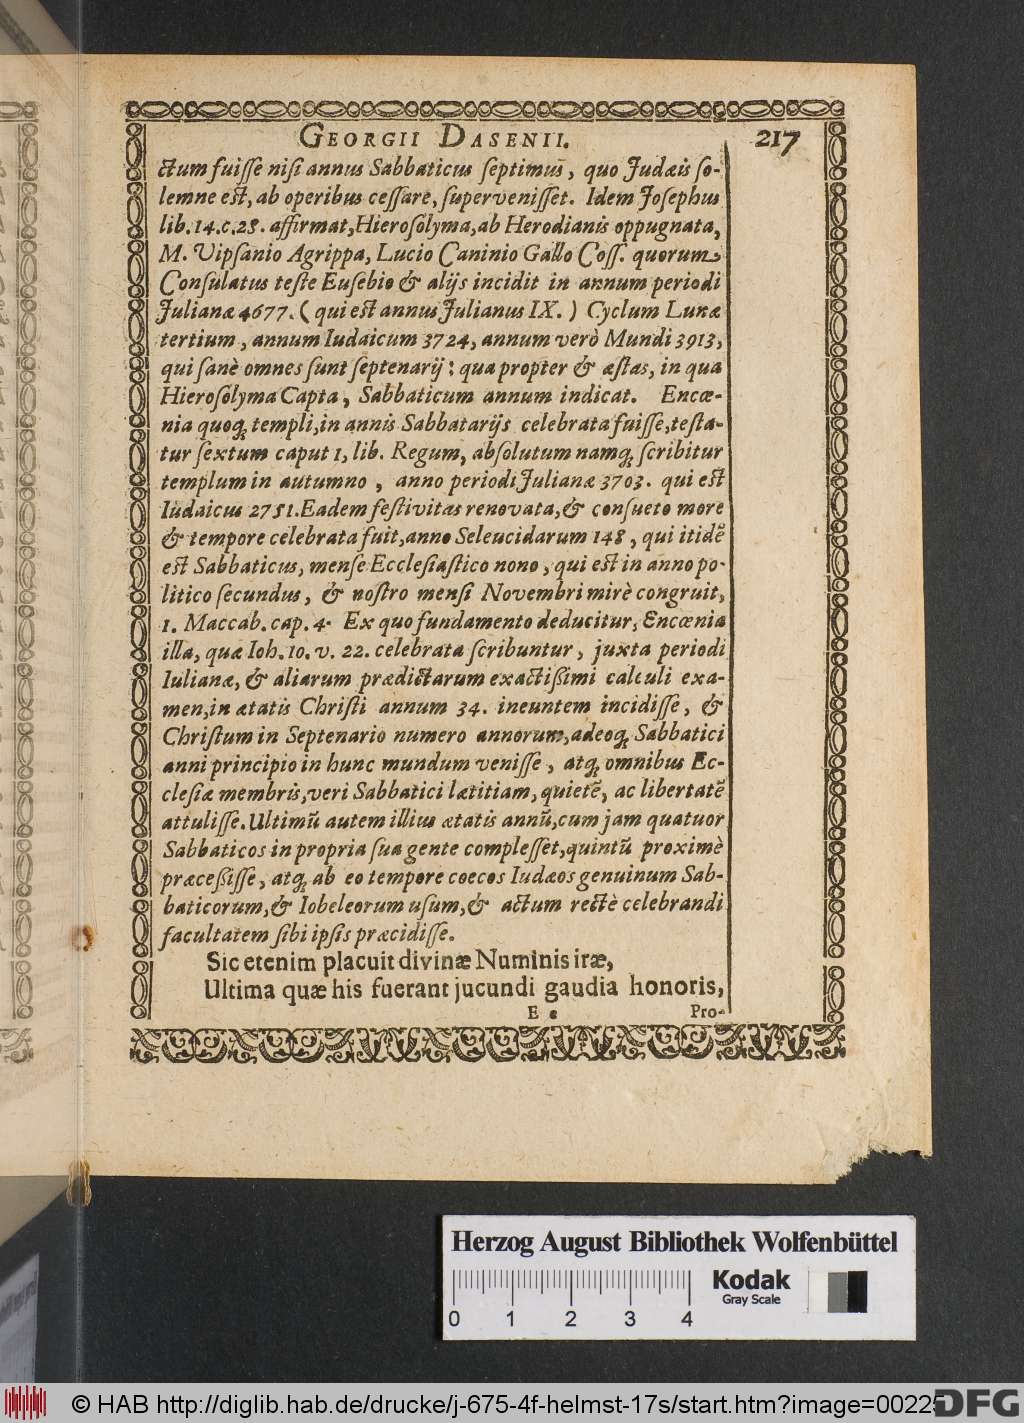 GEORGII DASENII. 217
ctum fuiſſe niſi annus Sabbaticus ſeptimus, quo Judæis ſo-
lemne eſt, ab operibus ceſſare, ſuperveniſſet. Idem Joſephus
lib. 14. c. 28. affirmat, Hieroſolyma, ab Herodianis oppugnata,
M. Vipſanio Agrippa, Lucio Caninio Gallo Coſſ. quorum
Conſulatus teſte Euſebio & alijs incidit in annum periodi
Julianæ 4677. ( qui eſt annus Julianus IX. ) Cyclum Lunæ
tertium, annum Iudaicum 3724, annum verò Mundi 3913,
qui ſanè omnes ſunt ſeptenarij: qua propter & æſtas, in qua
Hieroſolyma Capta, Sabbaticum annum indicat. Encœ-
nia quoq; templi, in annis Sabbatarijs celebrata fuiſſe, teſta-
tur ſextum caput 1, lib. Regum, abſolutum namq; ſcribitur
templum in autumno, anno periodi Julianæ 3703. qui eſt
Iudaicus 2751. Eadem feſtivitas renovata, & conſueto more
& tempore celebrata fuit, anno Seleucidarum 148, qui itidē
eſt Sabbaticus, menſe Eccleſiaſtico nono, qui eſt in anno po-
litico ſecundus, & noſtro menſi Novembri mirè congruit,
1. Maccab. cap. 4. Ex quo fundamento deducitur, Encœnia
illa, quæ Ioh. 10. v. 22. celebrata ſcribuntur, juxta periodi
Iulianæ, & aliarum prædictarum exactißimi calculi exa-
men, in ætatis Chriſti annum 34. ineuntem incidiſſe, &
Chriſtum in Septenario numero annorum, adeoq; Sabbatici
anni principio in hunc mundum veniſſe, atq; omnibus Ec-
cleſiæ membris, veri Sabbatici lætitiam, quietē, ac libertatē
attuliſſe. Ultimū autem illius ætatis annū, cum jam quatuor
Sabbaticos in propria ſua gente compleſſet, quintū proximè
præceßiſſe, atq; ab eo tempore coecos Iudæos genuinum Sab-
baticorum, & Iobeleorum uſum, & actum rectè celebrandi
facultatem ſibi ipſis præcidiſſe.
Sic etenim placuit divinæ Numinis iræ,
Ultima quæ his fuerant jucundi gaudia honoris,
E e Pro-
Herzog August Bibliothek Wolfenbüttel
Kodak
Gray Scale
0 1 2 3 4
© HAB http://diglib.hab.de/drucke/j-675-4f-helmst-17s/start.htm?image=00225
DFG